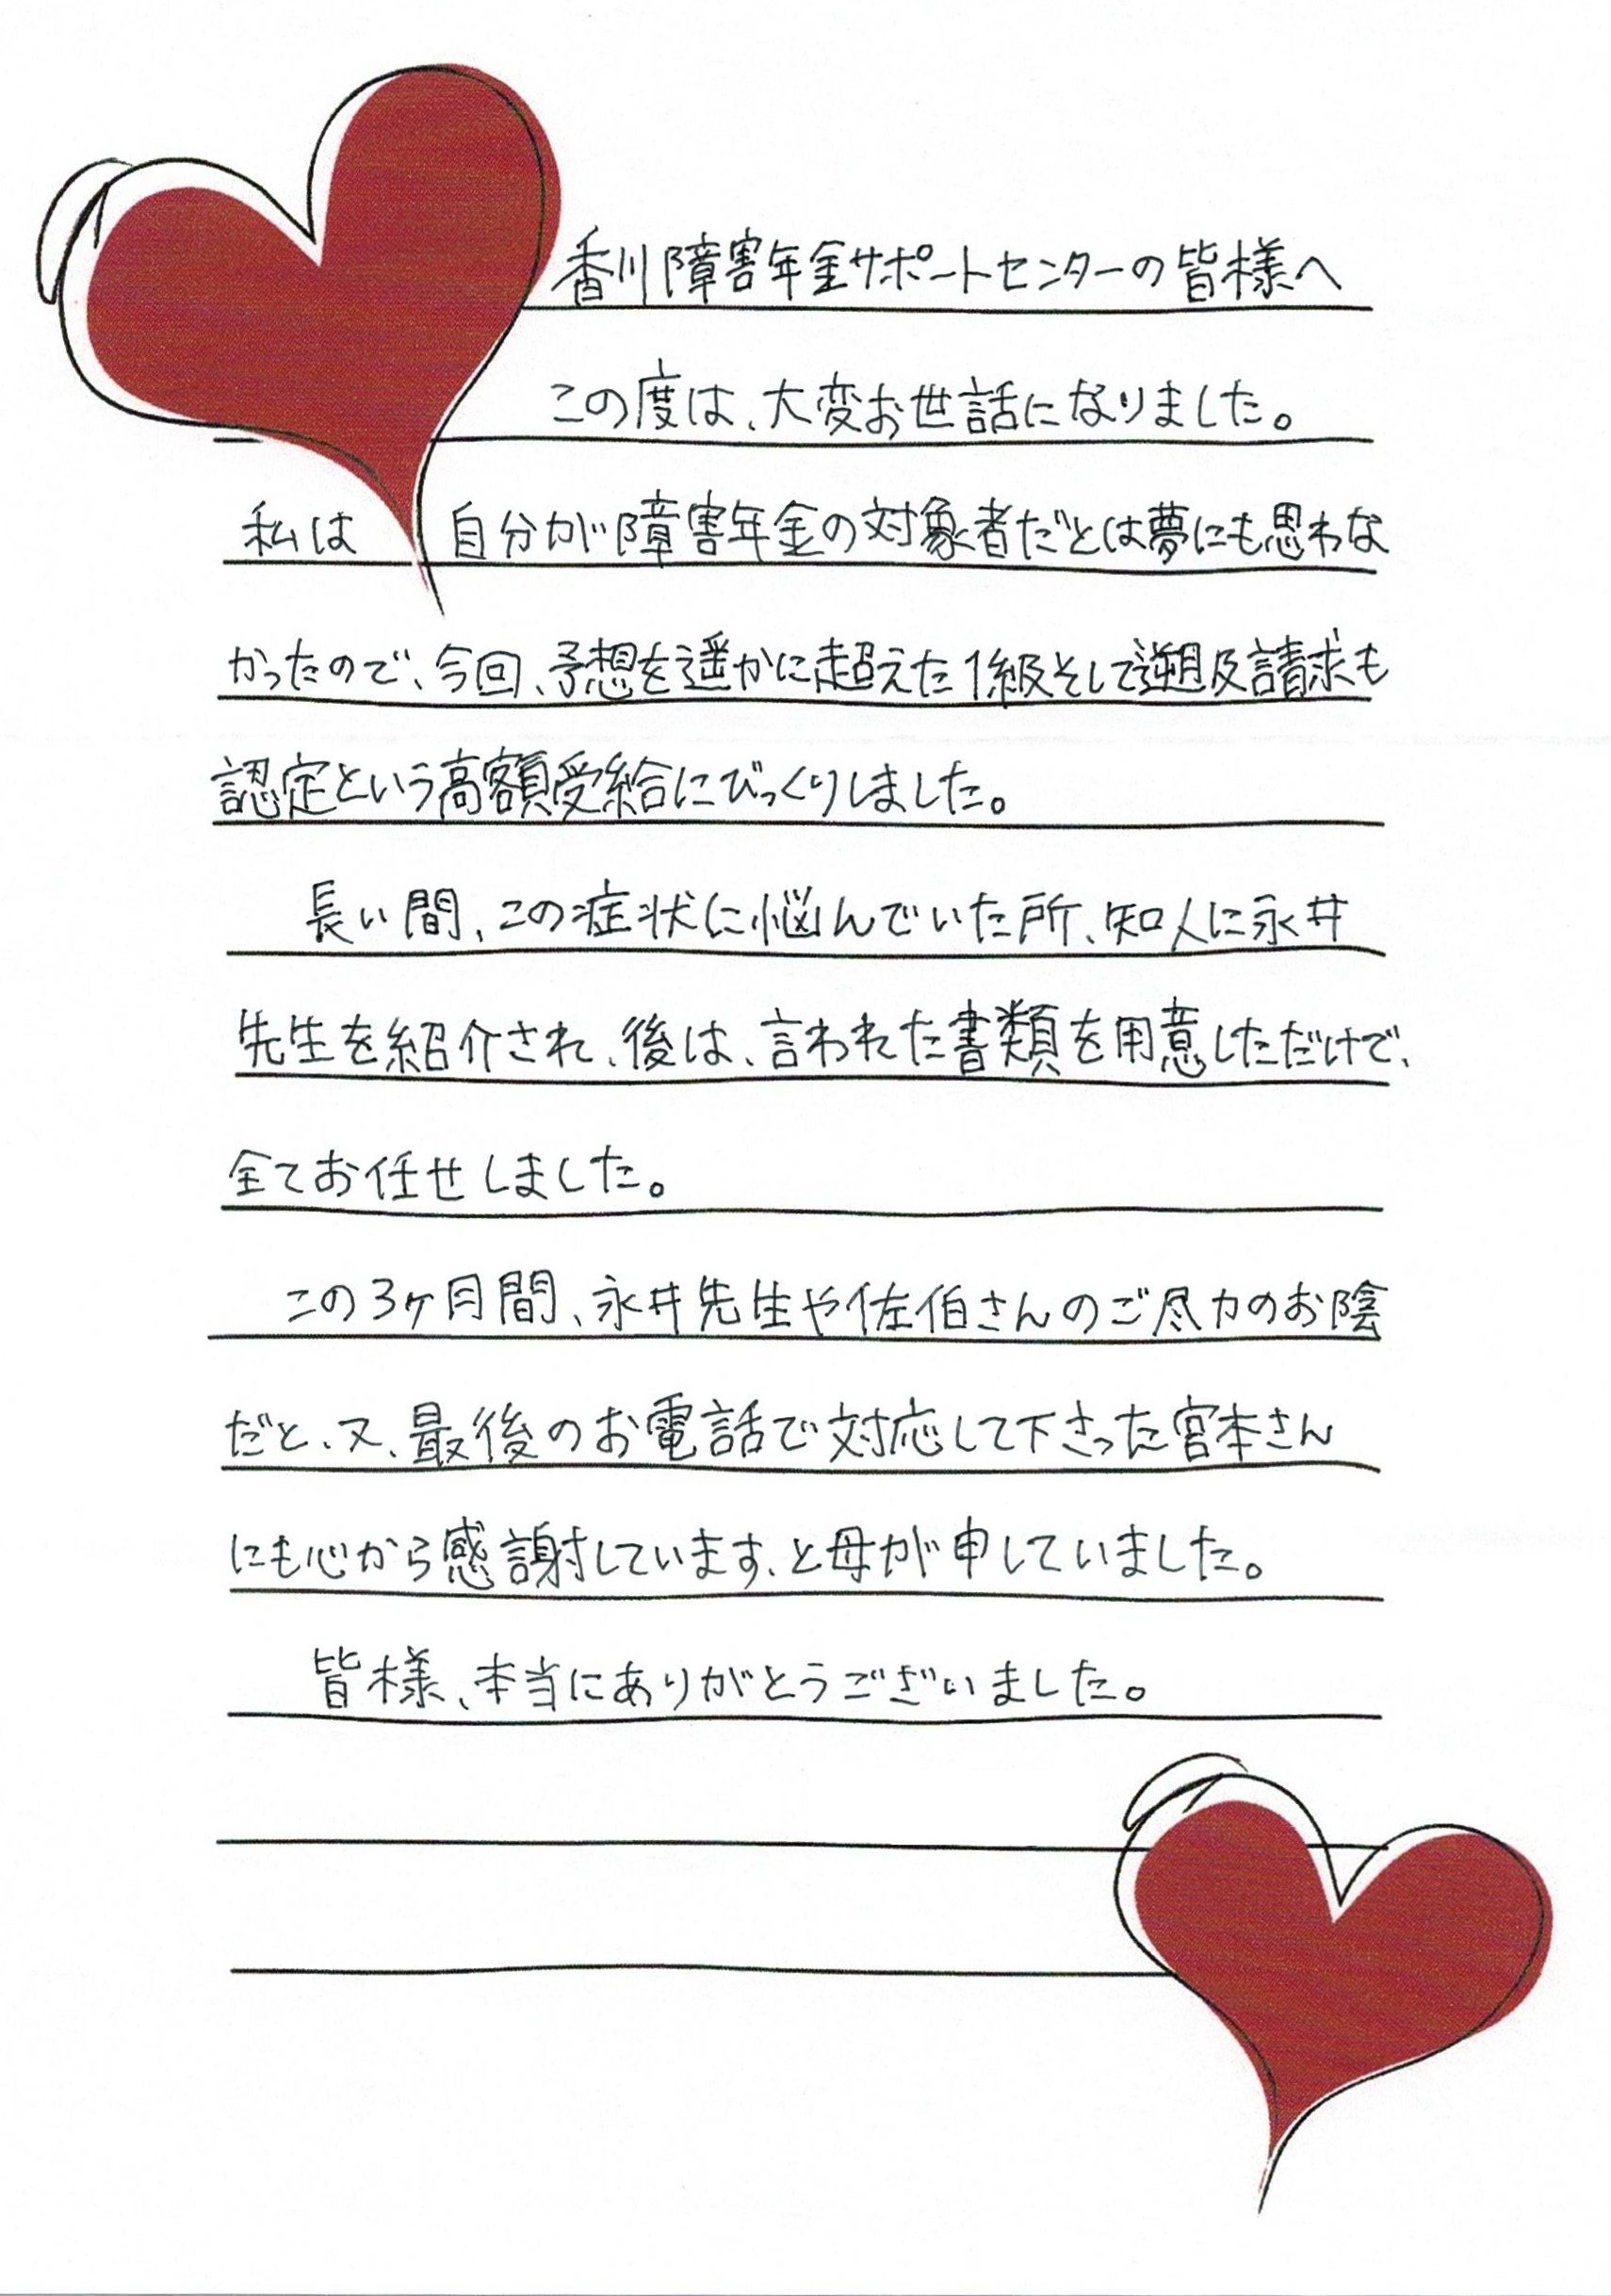 香川障害年金サポートセンターの皆様へ
この度は、大変お世話になりました。
私は 自分が障害年金の対象者だとは夢にも思わな
かったので、今回、予想を遥かに超えた1級そして遡及請求も
認定という高額受給にびっくりしました。
長い間、この症状に悩んでいた所、知人に永井
先生を紹介され、後は、言われた書類を用意しただけで、
全てお任せしました。
この3ヶ月間、永井先生や佐伯さんのご尽力のお陰
だと、又、最後のお電話で対応して下さった宮本さん
にも心から感謝しています、と母が申していました。
皆様、本当にありがとうございました。